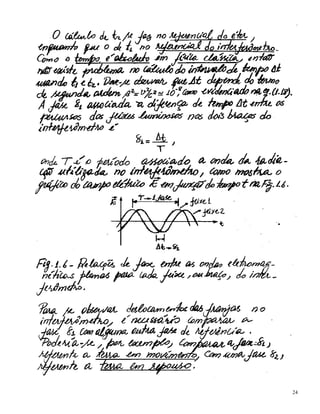 O cálculo de t₁ se fez no referencial do éter,
enquanto que o de t₂ no referencial do interferômetro.
Como o tempo é absoluto em física clássica, então
não existe problema no cálculo do intervalo de tempo Δt
usando t₁ e t₂. Deve-se observar que Δt depende do termo
de segunda ordem, β² = v²/c² ≅ 10⁻⁸, como evidenciado na eq.
A fase δ₁ associada à diferença de tempo Δt entre os
percursos dos feixes luminosos nos dois braços do
interferômetro é
δ₁ = Δt/T ,
onde T é o período associado à onda da radia-
ção utilizada no interferômetro, como mostra o
gráfico do campo elétrico E em função do tempo t na Fig. 1.6.
E T → 1 fase feixe 1
feixe 2
t
Δt → δ₁
Fig. 1.6 - Relação de fase entre as ondas eletromag-
néticas planas para cada feixe, ou braço, do inter-
ferômetro.
Para se observar deslocamentos das franjas no
interferômetro, é necessário comparar a
fase δ₁ com alguma outra fase de referência.
Poderia-se, por exemplo, comparar a fase δ₁,
referente a terra em movimento, com uma fase δ₂,
referente a terra em repouso.
24